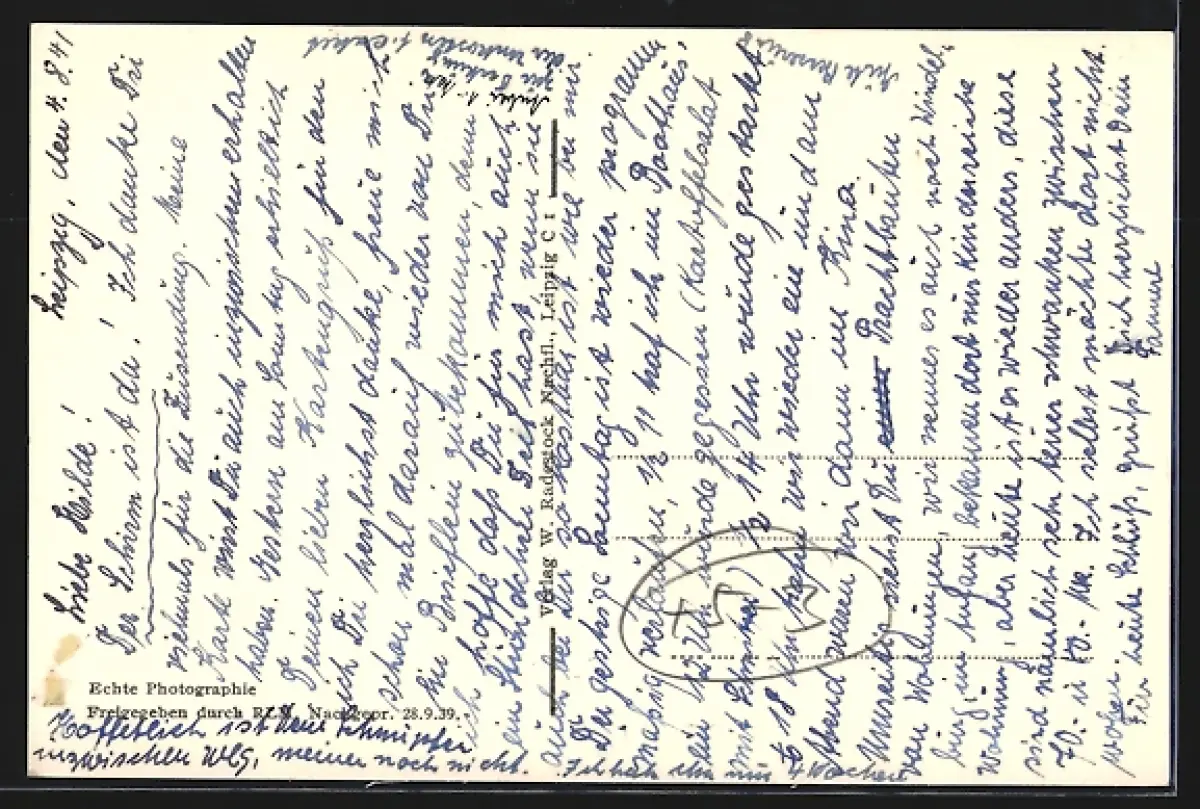 Leipzig, den 4. 8. 41
Liebe Hilde!
Der Schirm ist da! Ich danke Dir
vielmals für die Zusendung. Meine
Karte wirst Du auch inzwischen erhalten
haben. Gestern am Sonntag erhielt ich
Deinen lieben Kartengruß für den
ich Dir herzlichst danke, freue mich
schon mal darauf wieder von Dir
ein Brieflein zu bekommen, denn
ich hoffe daß Du für mich auch
ein Stündchen Zeit hast wenn sie
auch bei Dir so kostbar ist wie bei mir.
Der gestrige Sonntag ist wieder programm
mäßig verlaufen, 1/2 11 traf ich im Boothaus
ein, bis Uhr wurde gegessen (Kartoffelsalat
mit ) 1/2 14 Uhr wurde gestartet
18 Uhr kamen wir wieder ein und am
Abend waren wir dann im Kino.
Umseitig siehst Du Prachtbauten
von Wohnungen, wir nennen es auch noch Windel
burg, im Anfang bekamen dort nur kinderreiche
Wohnung, aber heute ist es wieder anders, diese
sind nämlich sehr teuer schwanken zwischen
70.- u 80.- M. Ich selbst möchte dort nicht
wohnen. Für heute Schluß, grüßt Dich herzlichst Dein
Hoffentlich ist Dein Schnupfen
inzwischen weg, meiner noch nicht. Ich hab ihn nun 4 Wochen
zur Deckung
der Unkosten
Echte Photographie
Freigegeben durch RLM. 28.9.39.
Verlag W. Radestock Nachfl., Leipzig C 1